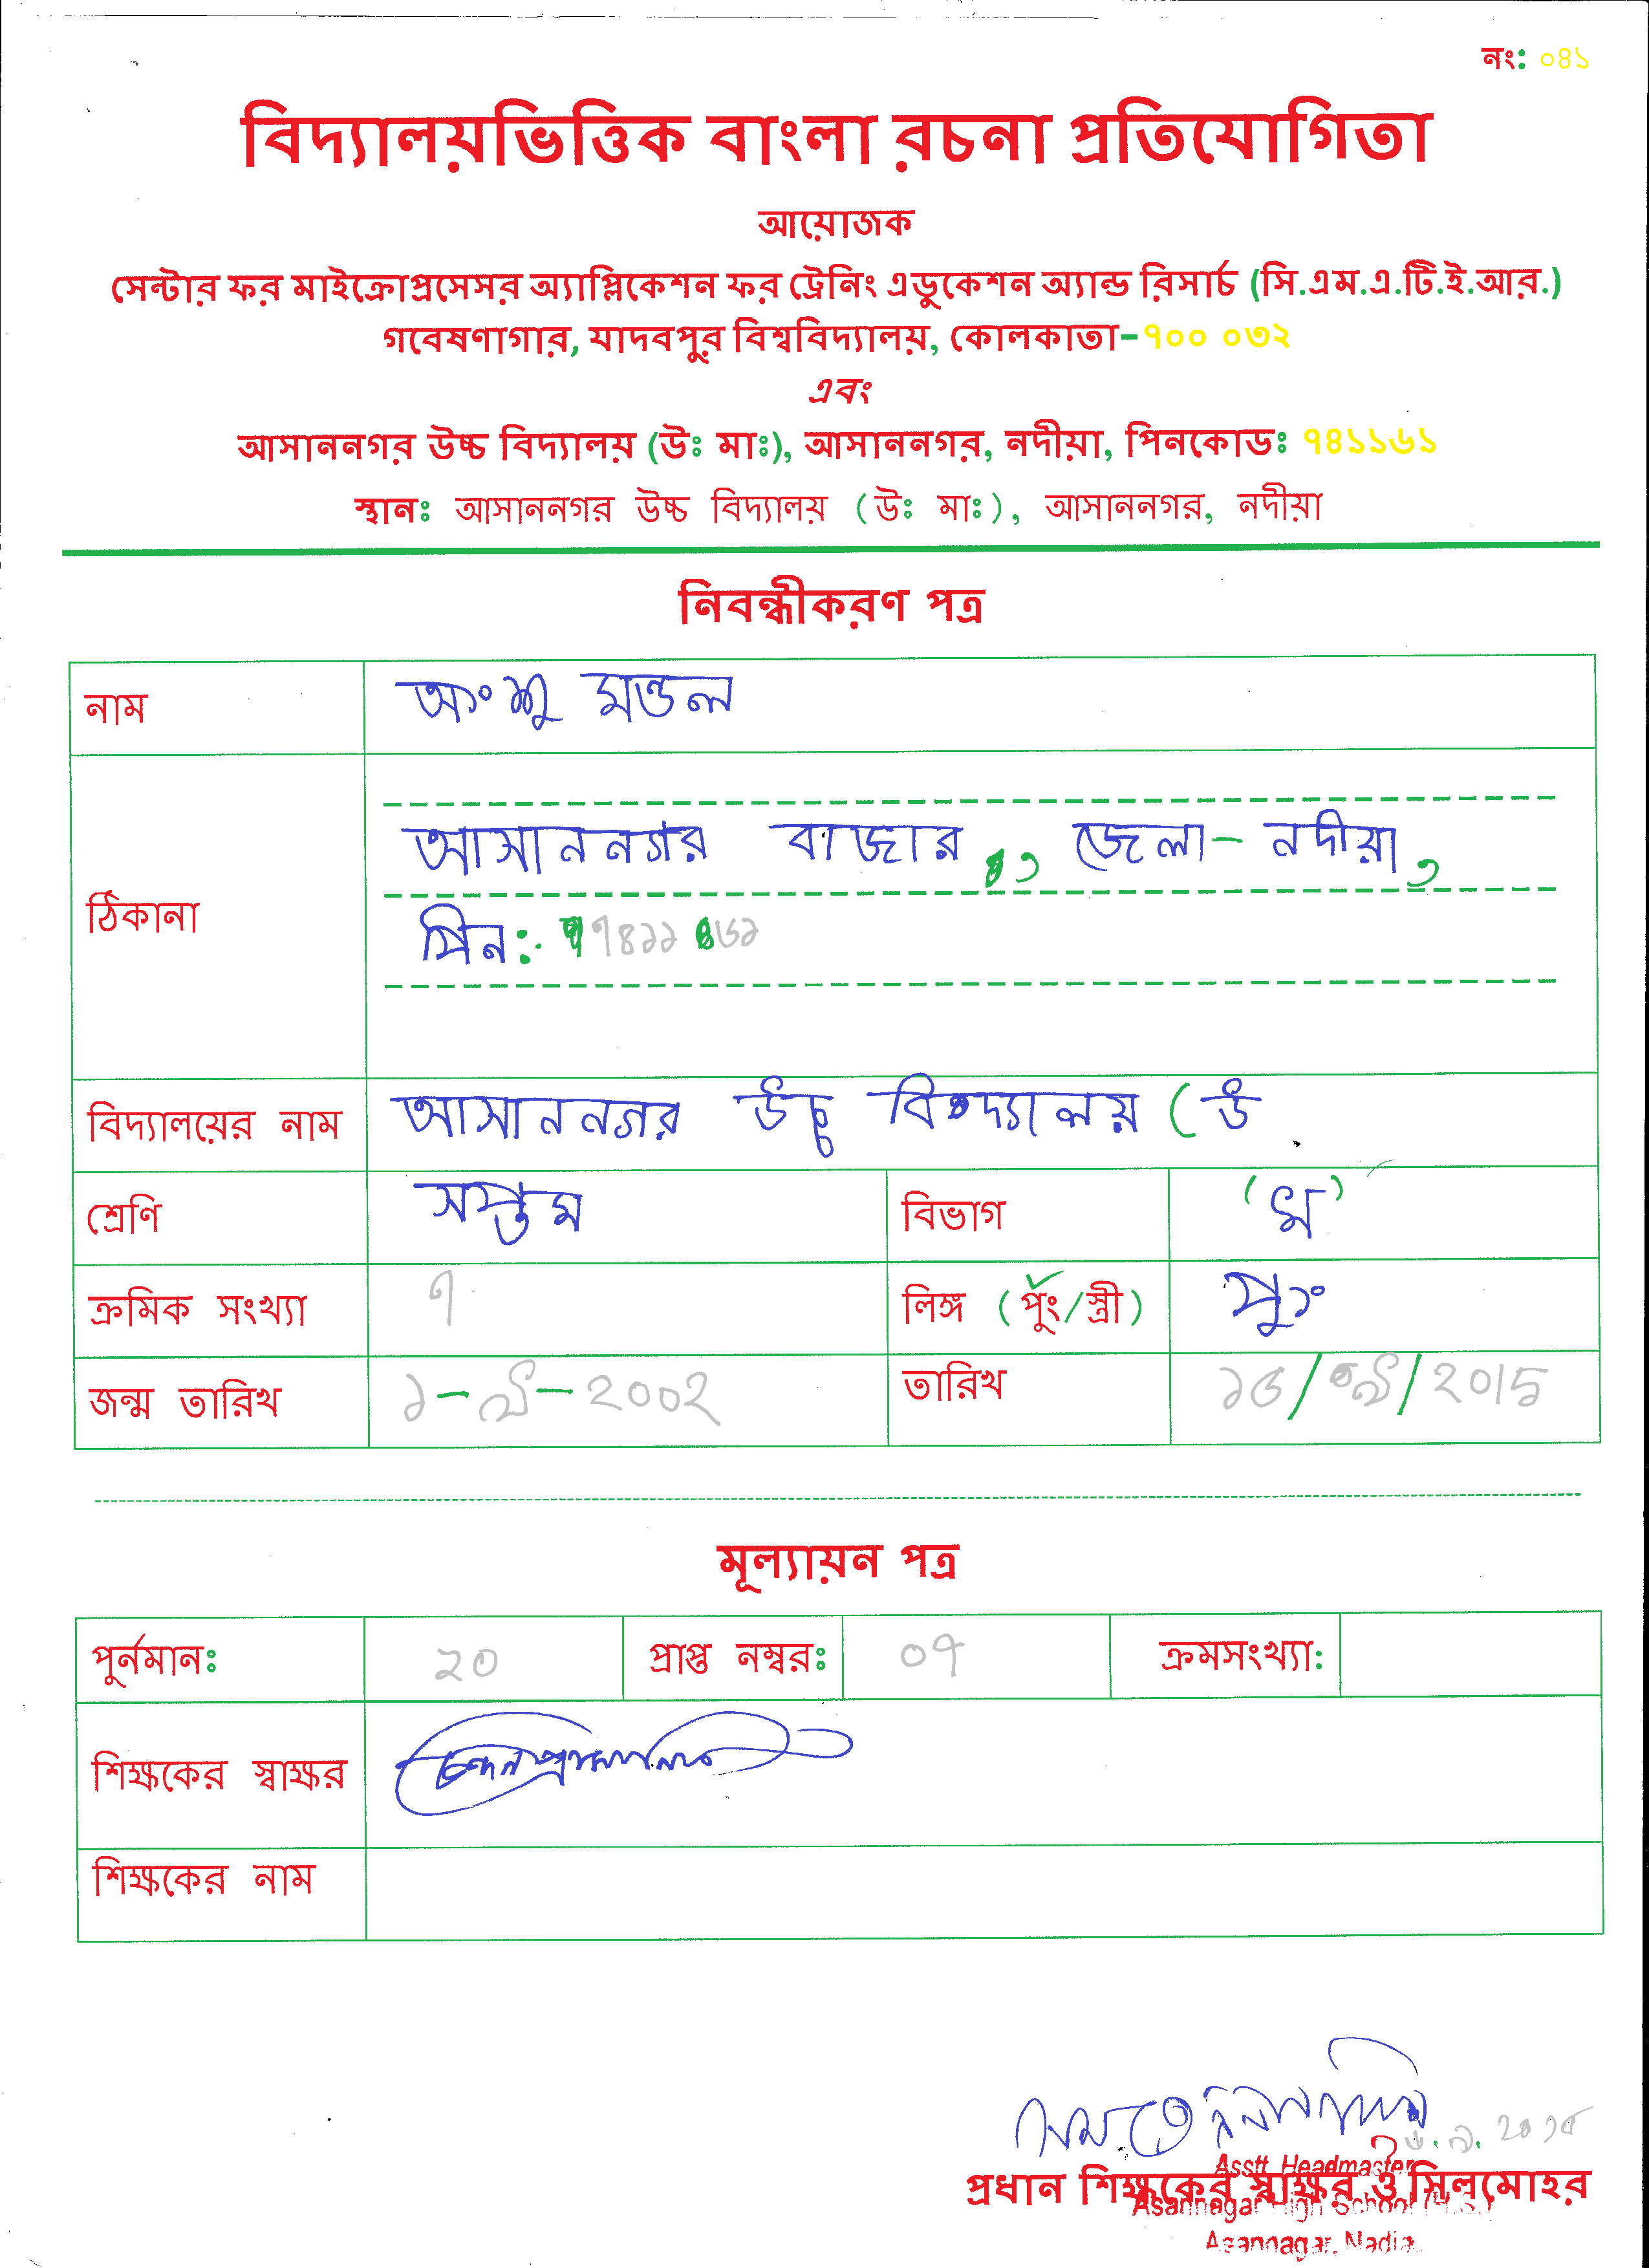 নং: ০৪১
বিদ্যালয়ভিত্তিক বাংলা রচনা প্রতিযোগিতা
আয়োজক
সেন্টার ফর মাইক্রোপ্রসেসর অ্যাপ্লিকেশন ফর ট্রেনিং এডুকেশন অ্যান্ড রিসার্চ (সি.এম.এ.টি.ই.আর.)
গবেষণাগার, যাদবপুর বিশ্ববিদ্যালয়, কোলকাতা-৭০০ ০৩২
এবং
আসাননগর উচ্চ বিদ্যালয় (উঃ মাঃ), আসাননগর, নদীয়া, পিনকোডঃ ৭৪১১৬১
স্থানঃ আসাননগর উচ্চ বিদ্যালয় (উঃ মাঃ), আসাননগর, নদীয়া
নিবন্ধীকরণ পত্র
নাম অংশু মন্ডল
ঠিকানা
আসাননগর বাজার, জেলা- নদীয়া,
পিন: ৭৪১১৬১
বিদ্যালয়ের নাম আসাননগর উচ্চ বিদ্যালয় (উ
শ্রেণি সপ্তম বিভাগ
ক্রমিক সংখ্যা ৭ লিঙ্গ (পুং/স্ত্রী) পুং
জন্ম তারিখ ১-৯-২০০২ তারিখ ১৬/০৯/২০১৫
মূল্যায়ন পত্র
পুর্নমানঃ ২০ প্রাপ্ত নম্বরঃ ০৭ ক্রমসংখ্যা:
শিক্ষকের স্বাক্ষর
শিক্ষকের নাম
Asstt. Headmaster
প্রধান শিক্ষকের স্বাক্ষর ও সিলমোহর
Asannagar High School (H.S.)
Asannagar, Nadia.